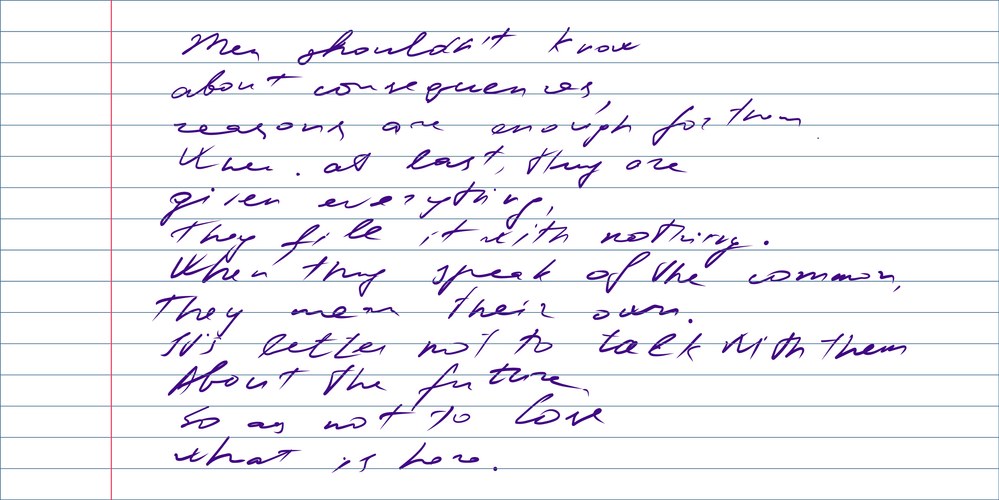 Men shouldn't know
about consequences,
reasons are enough for them
When. at last, they are
given everything,
They file it with nothing.
When they speak of the common,
They mean their own.
It's better not to talk with them
About the future,
So as not to love
what is here.